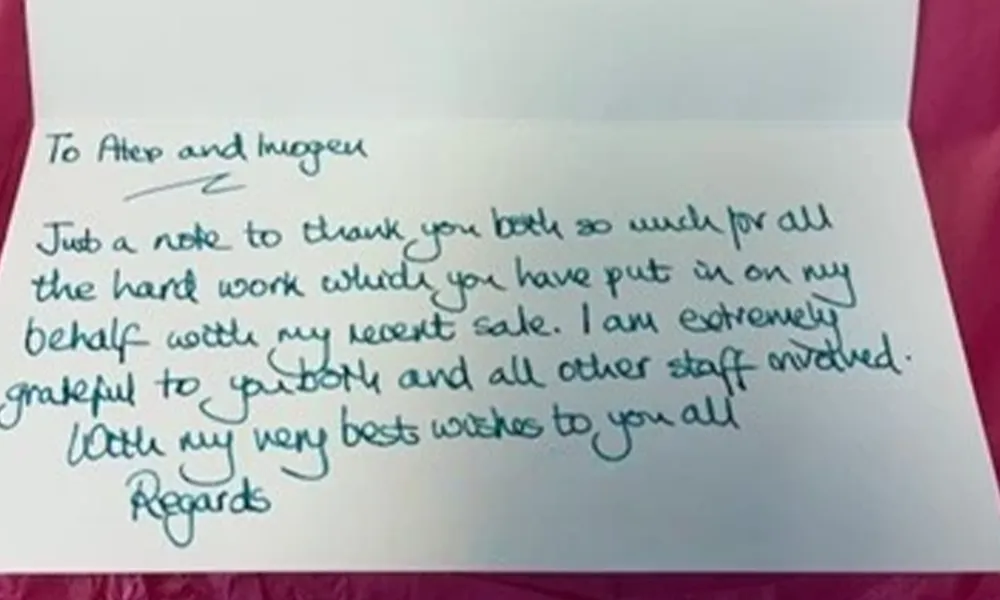 To Alex and Imogen
Just a note to thank you both so much for all
the hard work which you have put in on my
behalf with my recent sale. I am extremely
grateful to you both and all other staff involved.
With my very best wishes to you all
Regards